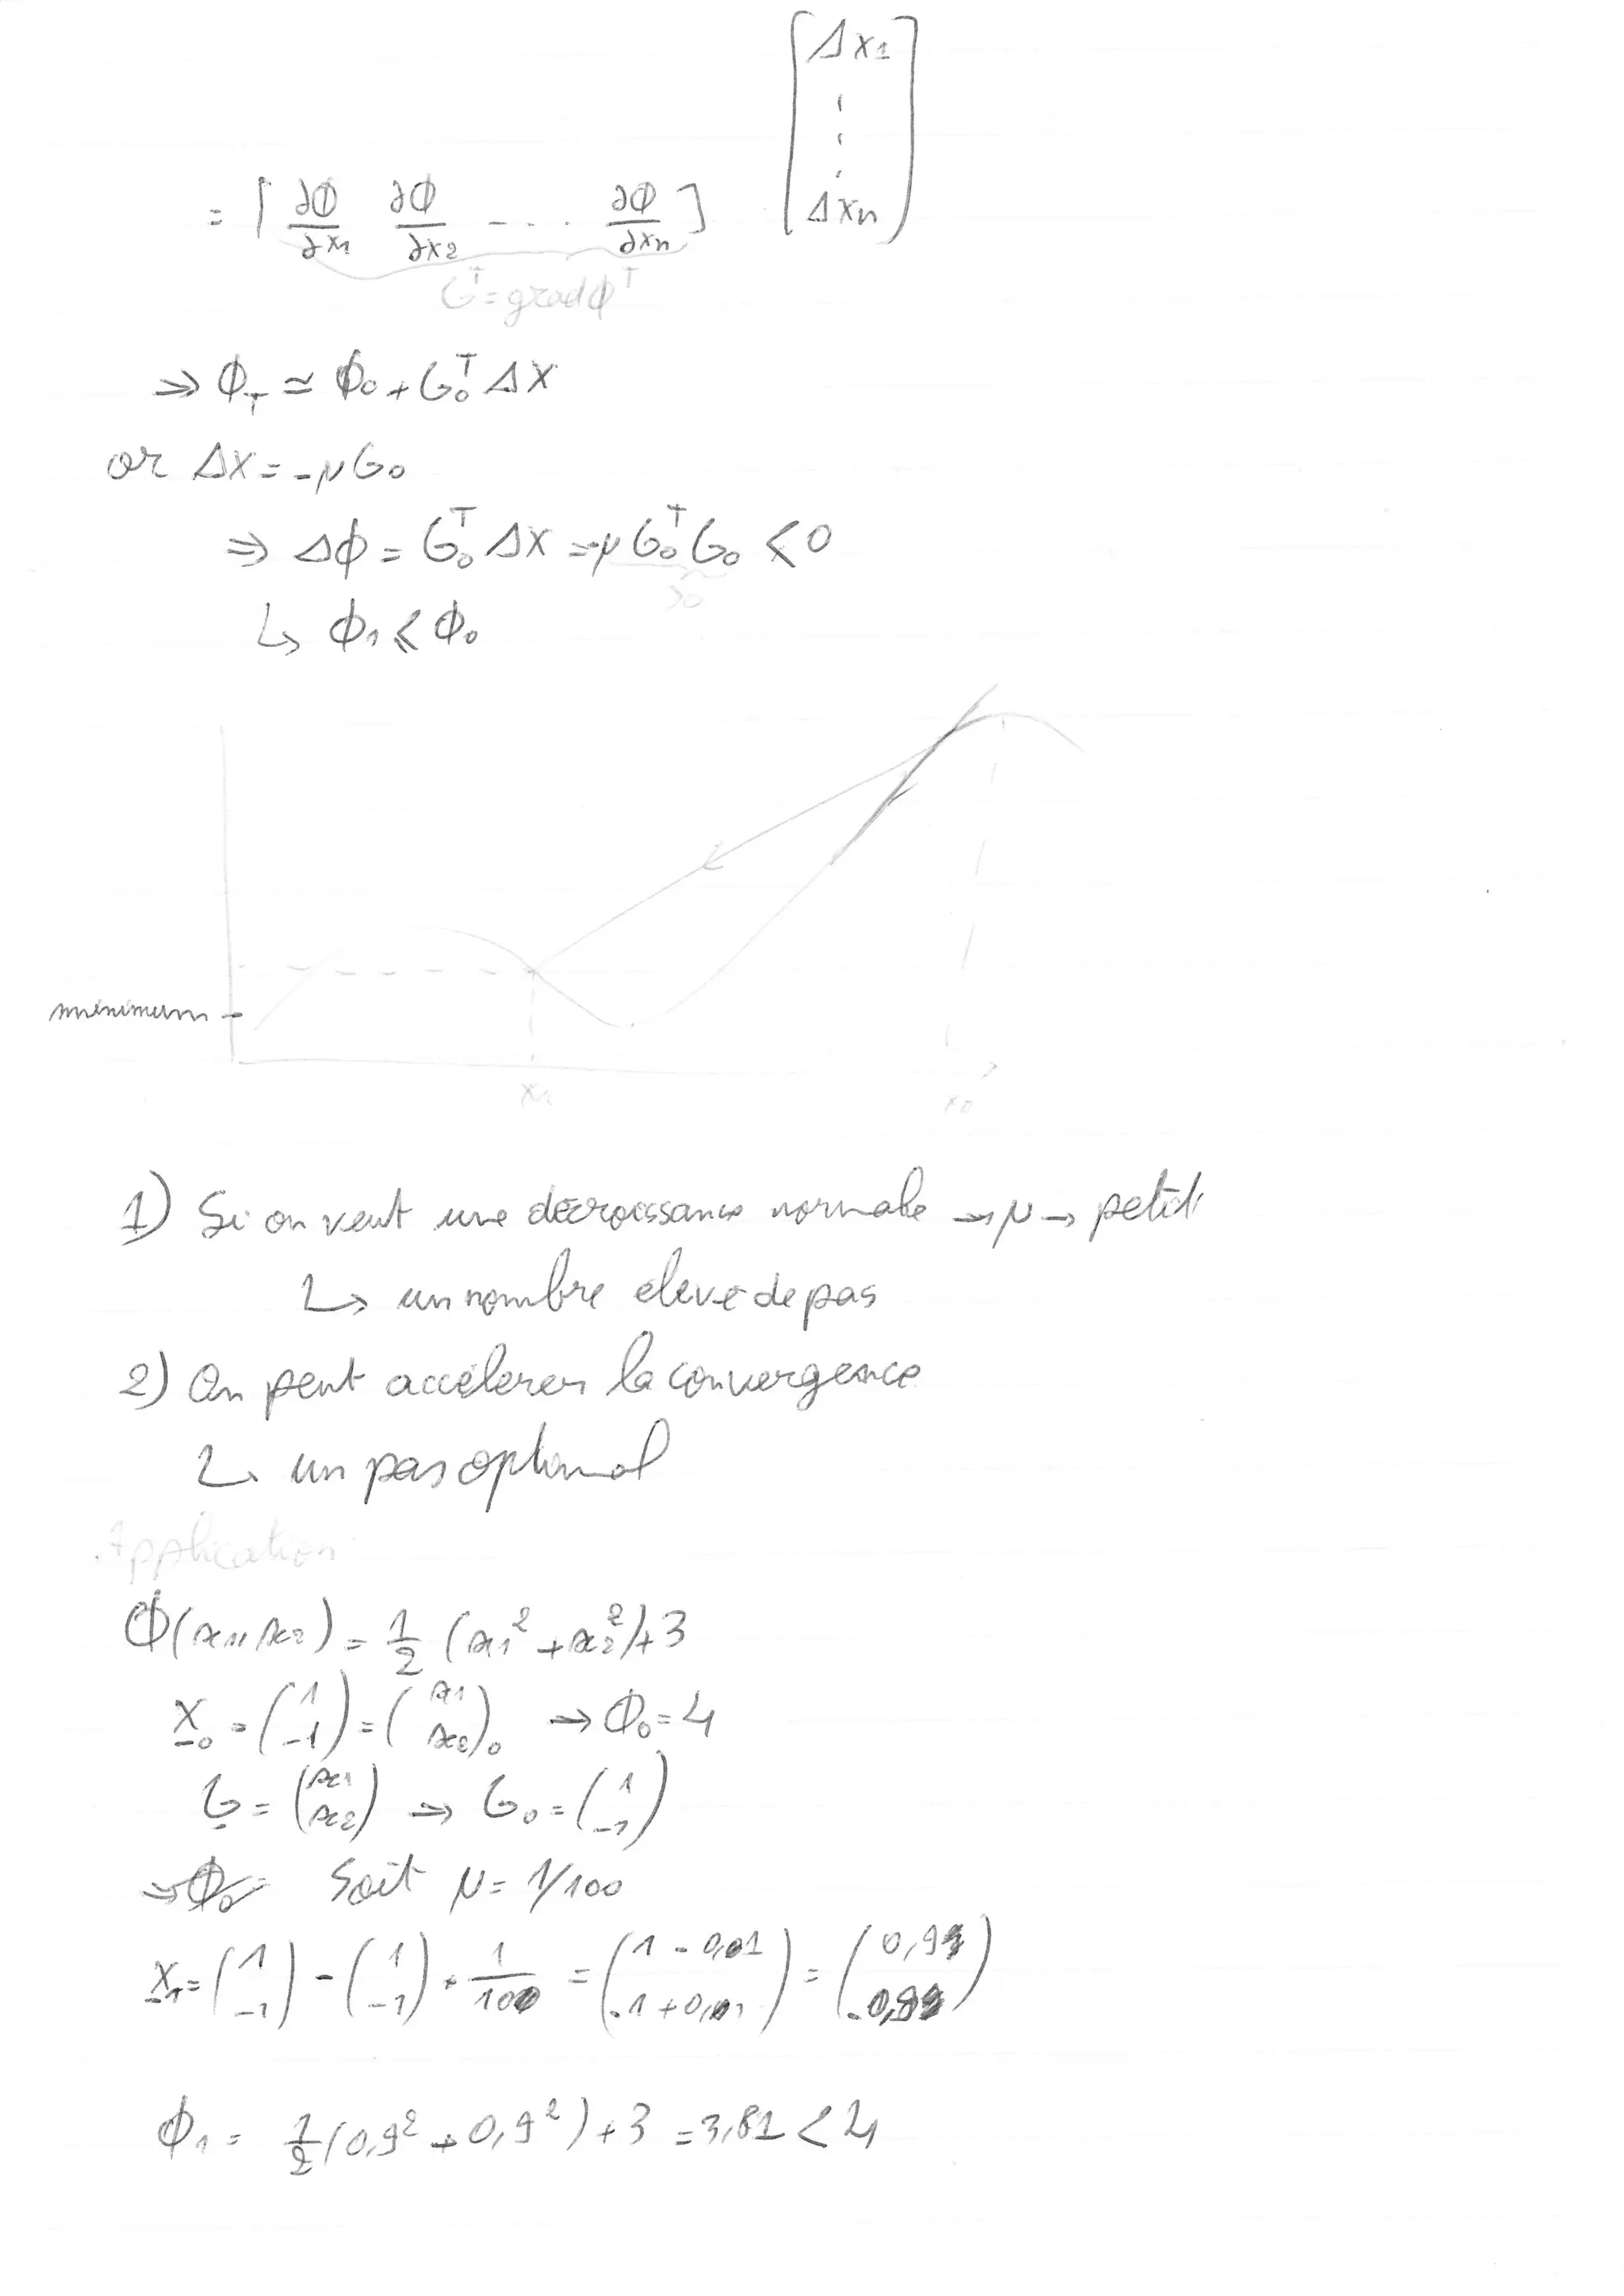 = [ ∂Φ/∂x1 ∂Φ/∂x2 - . . . ∂Φ/∂xn ] [ Δx1 ⋮ Δxn ]
Gᵀ = grad Φᵀ
⇒ Φ₁ ≃ Φ₀ + G₀ᵀ ΔX
or ΔX = -μG₀
⇒ ΔΦ = G₀ᵀ ΔX = -μ G₀ᵀ G₀ ⩽ 0
>0
↳ Φ₁ ⩽ Φ₀
minimum
x₁ x₀
1) Si on veut une décroissance normale → μ → petit
↳ un nombre élevé de pas
2) On peut accélérer la convergence
↳ un pas optimal
Application
Φ(x₁, x₂) = 1/2 (x₁² + x₂²) + 3
X₀ = (1 -1) = (x₁ x₂)₀ → Φ₀ = 4
G = (x₁ x₂) ⇒ G₀ = (1 -1)
Soit μ = 1/100
X₁ = (1 -1) - (1 -1) · 1/100 = (1 - 0,01 -1 + 0,01) = (0,99 -0,99)
Φ₁ = 1/2 (0,9² + 0,9²) + 3 = 3,81 < 4